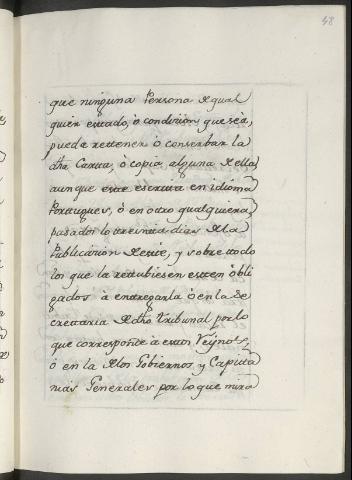 48
que ninguna Persona de qual
quier estado, ò condicion, que sea,
pueda rettener ò conserbar la
dha Carta, ò copia alguna de ella,
aunque este escrita en idioma
Porttugues, ò en otro qualquiera,
pasados los treinta dias de la
Publicacion de este, y sobre todo
los que la rettubiesen esten òbli
gados à entregarla ò en la Se
crettaria de dho tribunal por lo
que corresponde à estos Reynos,
ò en la de los Gobiernos, y Capita
nias Generales por lo que mira